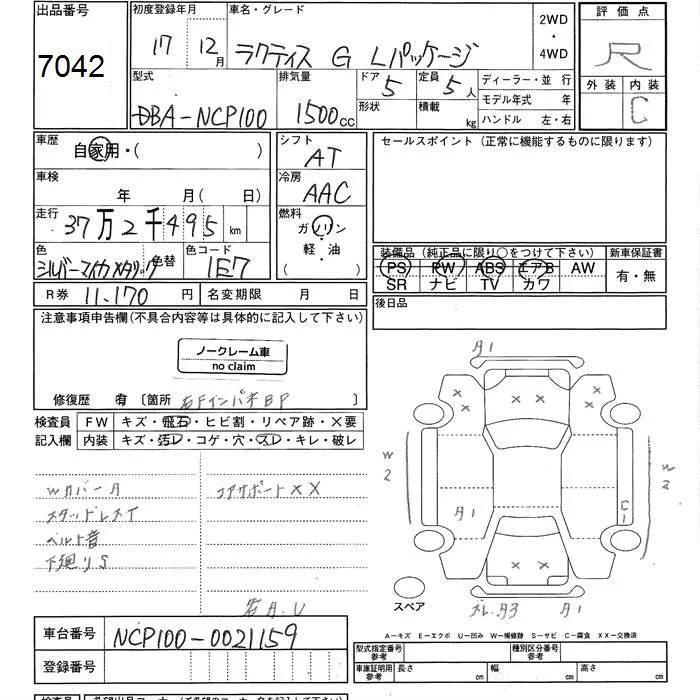 出品番号
7042
初度登録年月
17 12月
車名・グレード
ラクティス G Lパッケージ
2WD
・
4WD
評価点
R
外装 内装
C
型式
DBA-NCP100
排気量
1500cc
ドア 5
形状
定員 5人
積載 kg
ディーラー・並行
モデル年式 年
ハンドル 左・右
車歴
自家用・( )
シフト
AT
セールスポイント (正常に機能するものに限ります)
車検
年 月(日)
冷房
AAC
走行
37万2千495km
燃料
ガソリン
軽・油
( )
色
シルバーマイカメタリック
色替
色コード
1E7
装備品 (純正品に限り○をつけて下さい)
PS PW ABS エアB AW
SR ナビ TV カワ
新車保証書
有・無
R券 11,170円
名変期限 月 日
後日品
注意事項申告欄(不具合内容等は具体的に記入して下さい)
ノークレーム車
no claim
修復歴 有 [箇所 右Fインパネ ]
検査員
記入欄
FW キズ・飛石・ヒビ割・リペア跡・×要
内装 キズ・汚レ・コゲ・穴・スレ・キレ・破レ
Wカバー
コアサポートXX
スタッドレス
ベルト音
下廻りS
A1
W2
A1
C1
W2
スペア
A1
A-キズ E-エクボ U-凹み W-補修跡 S-サビ C-腐食 XX-交換済
車台番号 NCP100-0021159
登録番号
型式指定番号
参考
種別区分番号
参考
車庫証明用
参考
長さ cm
幅 cm
高さ cm